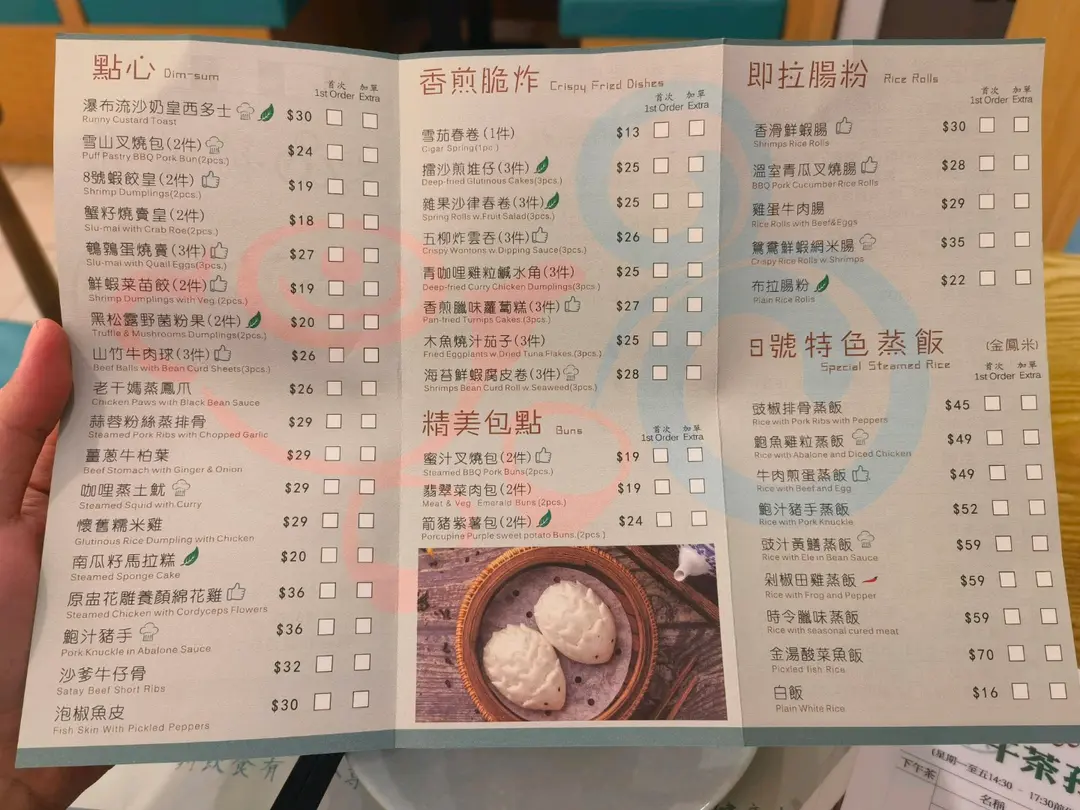 點心 Dim-sum
首次 加單
1st Order Extra
瀑布流沙奶皇西多士 $30
Runny Custard Toast
雪山叉燒包(2件) $24
Puff Pastry BBQ Pork Bun(2pcs.)
8號蝦餃皇(2件) $19
Shrimp Dumplings(2pcs.)
蟹籽燒賣皇(2件) $18
Siu-mai with Crab Roe(2pcs.)
鵪鶉蛋燒賣(3件) $27
Siu-mai with Quail Eggs(3pcs.)
鮮蝦菜苗餃(2件) $19
Shrimp Dumplings with Veg.(2pcs.)
黑松露野菌粉果(2件) $20
Truffle & Mushrooms Dumplings(2pcs.)
山竹牛肉球(3件) $26
Beef Balls with Bean Curd Sheets(3pcs.)
老干媽蒸鳳爪 $26
Chicken Paws with Black Bean Sauce
蒜蓉粉絲蒸排骨 $29
Steamed Pork Ribs with Chopped Garlic
薑蔥牛柏葉 $29
Beef Stomach with Ginger & Onion
咖哩蒸土魷 $29
Steamed Squid with Curry
懷舊糯米雞 $29
Glutinous Rice Dumpling with Chicken
南瓜籽馬拉糕 $20
Steamed Sponge Cake
原盅花雕養顏綿花雞 $36
Steamed Chicken with Cordyceps Flowers
鮑汁豬手 $36
Pork Knuckle in Abalone Sauce
沙爹牛仔骨 $32
Satay Beef Short Ribs
泡椒魚皮 $30
Fish Skin With Pickled Peppers
香煎脆炸 Crispy Fried Dishes
首次 加單
1st Order Extra
雪茄春卷(1件) $13
Cigar Spring(1pc.)
擂沙煎堆仔(3件) $25
Deep-fried Glutinous Cakes(3pcs.)
雜果沙律春卷(3件) $25
Spring Rolls w.Fruit Salad(3pcs.)
五柳炸雲吞(3件) $26
Crispy Wontons w.Dipping Sauce(3pcs.)
青咖哩雞粒鹹水角(3件) $25
Deep-fried Curry Chicken Dumplings(3pcs.)
香煎臘味蘿蔔糕(3件) $27
Pan-fried Turnips Cakes(3pcs.)
木魚燒汁茄子(3件) $25
Fried Eggplants w.Dried Tuna Flakes.(3pcs.)
海苔鮮蝦腐皮卷(3件) $28
Shrimps Bean Curd Roll w.Seaweed(3pcs.)
精美包點 Buns
首次 加單
1st Order Extra
蜜汁叉燒包(2件) $19
Steamed BBQ Pork Buns(2pcs.)
翡翠菜肉包(2件) $19
Meat & Veg Emerald Buns(2pcs.)
箭豬紫薯包(2件) $24
Porcupine Purple sweet potato Buns.(2pcs.)
即拉腸粉 Rice Rolls
首次 加單
1st Order Extra
香滑鮮蝦腸 $30
Shrimps Rice Rolls
溫室青瓜叉燒腸 $28
BBQ Pork Cucumber Rice Rolls
雞蛋牛肉腸 $29
Rice Rolls with Beef&Eggs
鴛鴦鮮蝦網米腸 $35
Crispy Rice Rolls w.Shrimps
布拉腸粉 $22
Plain Rice Rolls
8號特色蒸飯 (金鳳米)
Special Steamed Rice
首次 加單
1st Order Extra
豉椒排骨蒸飯 $45
Rice with Pork Ribs with Peppers
鮑魚雞粒蒸飯 $49
Rice with Abalone and Diced Chicken
牛肉煎蛋蒸飯 $49
Rice with Beef and Egg
鮑汁豬手蒸飯 $52
Rice with Pork Knuckle
豉汁黃鱔蒸飯 $59
Rice with Ele in Bean Sauce
剁椒田雞蒸飯 $59
Rice with Frog and Pepper
時令臘味蒸飯 $59
Rice with seasonal cured meat
金湯酸菜魚飯 $70
Pickled fish Rice
白飯 $16
Plain White Rice
(星期一至五14:30 - 17:30
下午茶
名稱